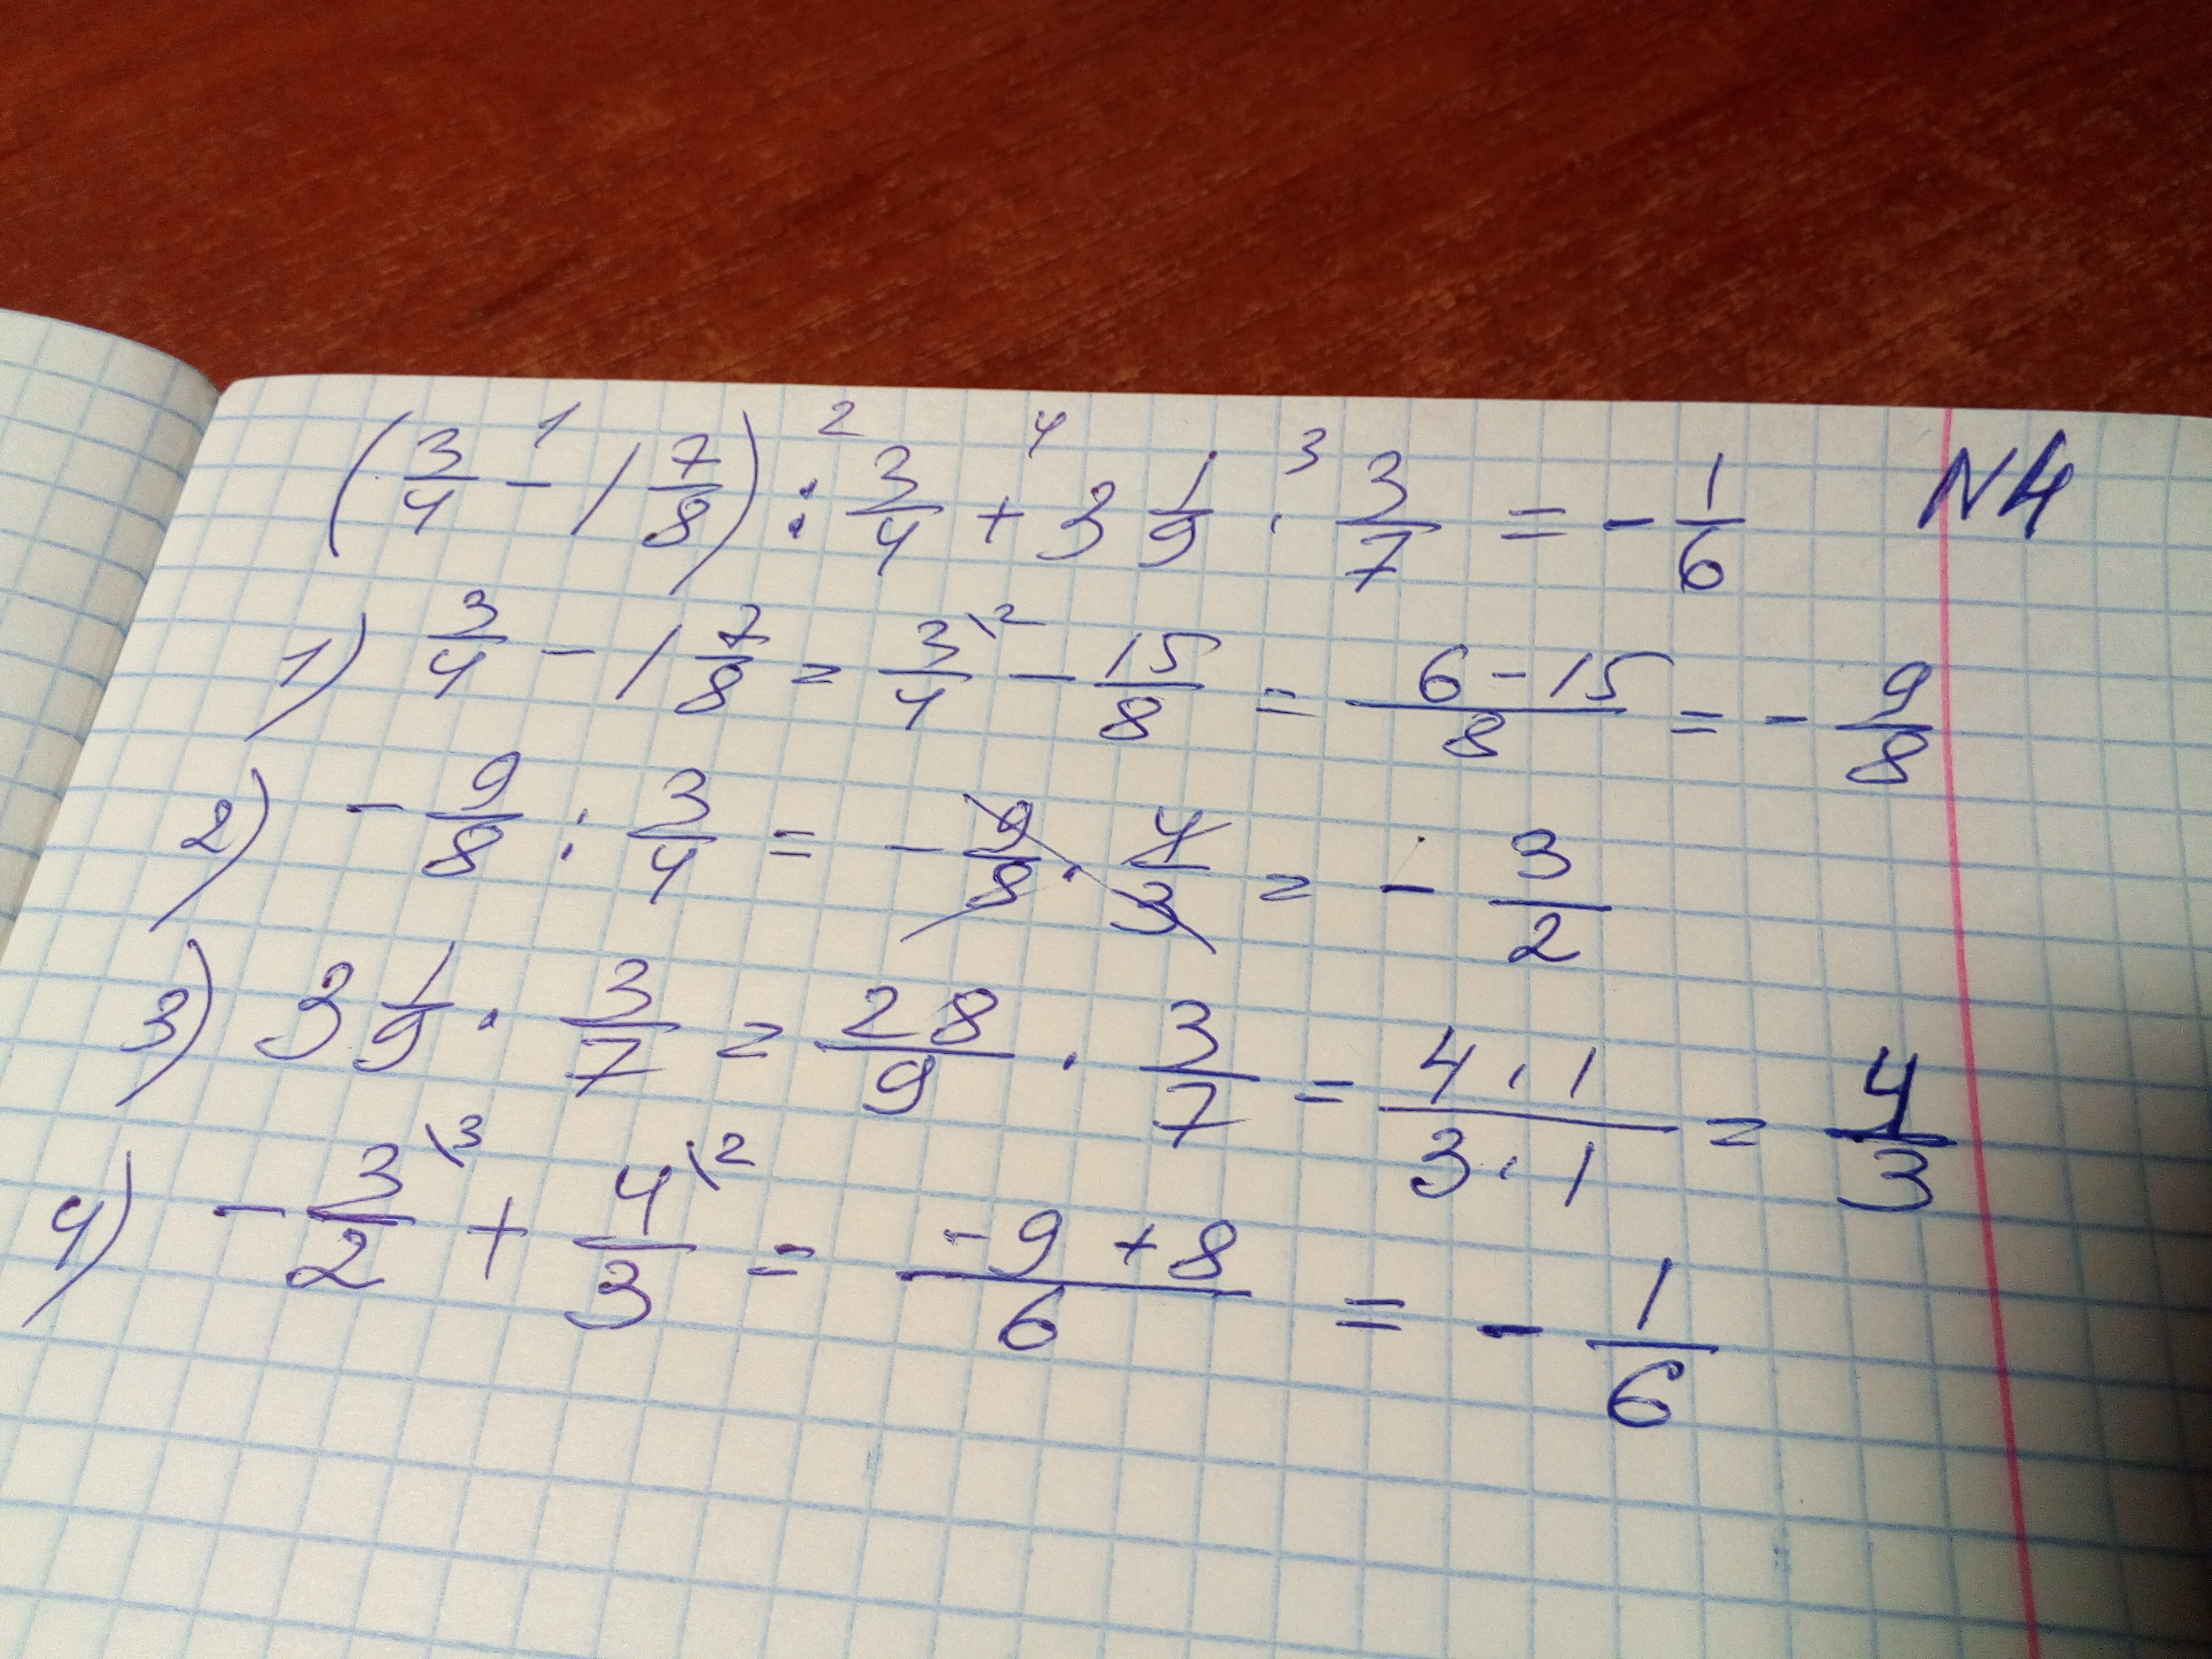 (3/4 - 1 7/8) : 3/4 + 3 1/9 · 3/7 = - 1/6 N4
1 2 4 3
1) 3/4 - 1 7/8 = 3/4 \2 - 15/8 = (6 - 15)/8 = - 9/8
2) - 9/8 : 3/4 = - 9/8 · 4/3 = - 3/2
3) 3 1/9 · 3/7 = 28/9 · 3/7 = (4 · 1)/(3 · 1) = 4/3
4) - 3/2 \3 + 4/3 \2 = (-9 + 8)/6 = - 1/6